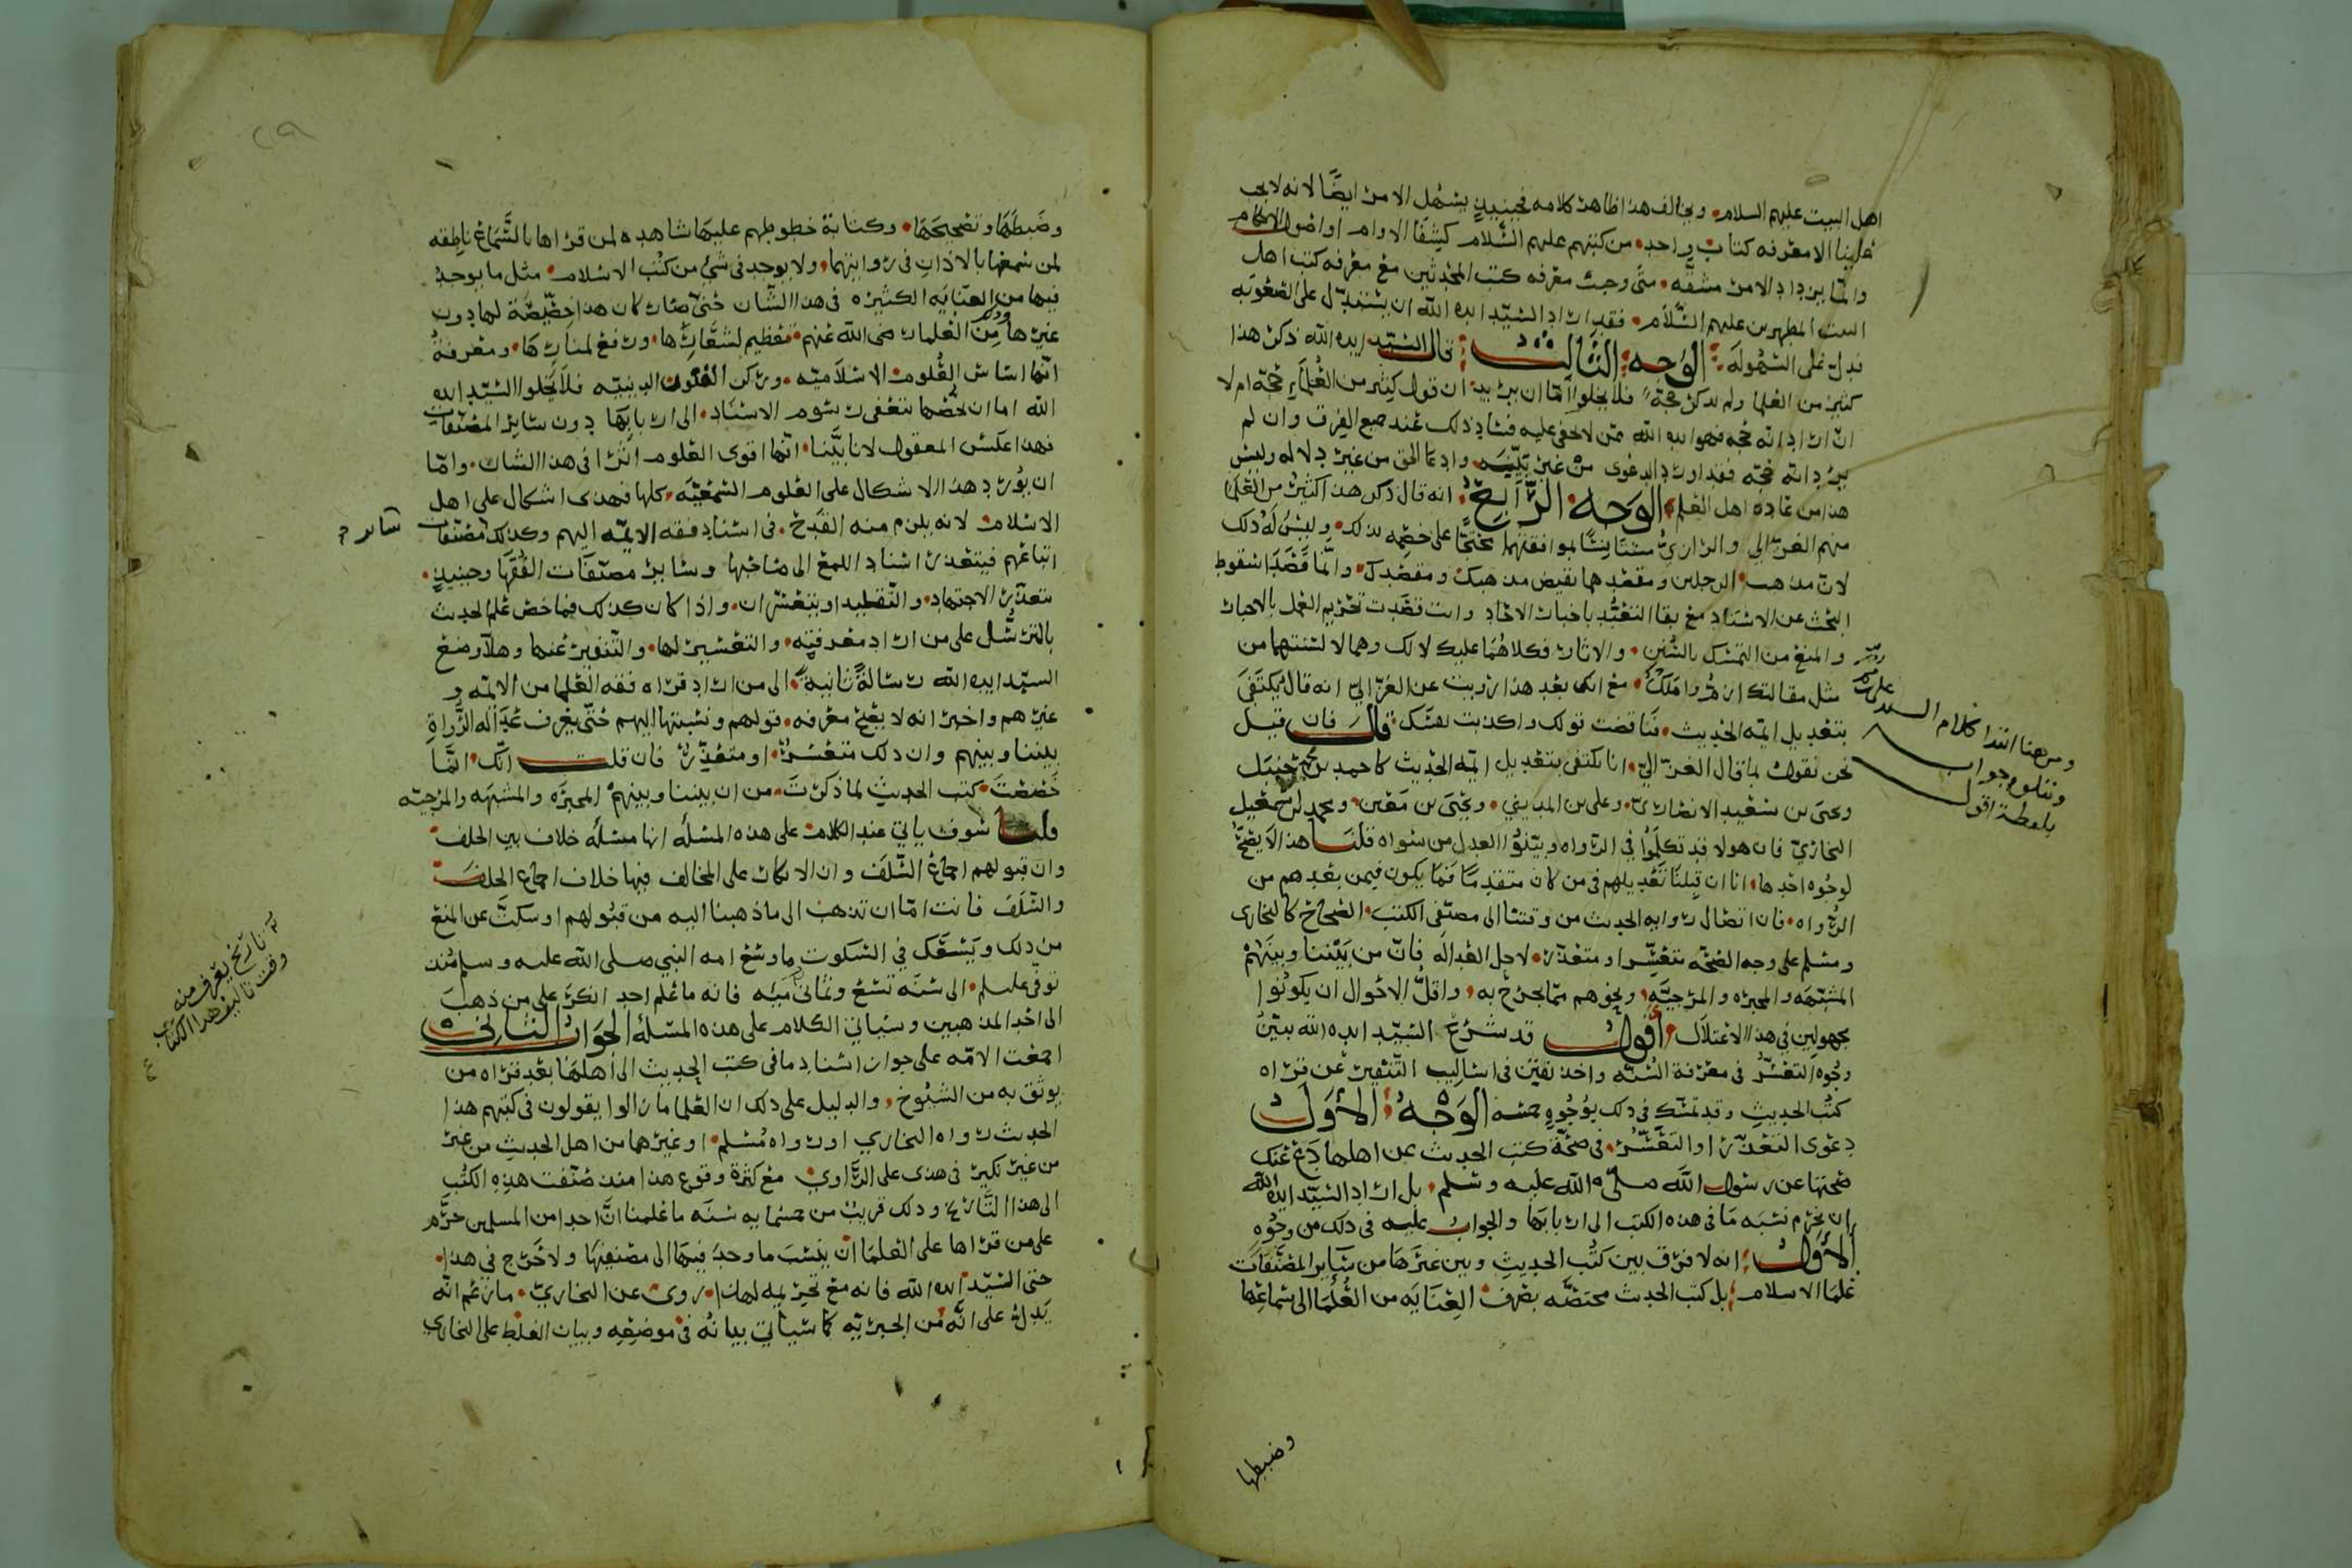 اهل البيت عليهم السلام. ويخالف هذا ظاهر كلامه فحينئذٍ يشمل الامر ايضًا لانه لا يجب
علينا الا معرفه كتاب واحد. من كتبهم عليهم السَّلام كشفا الاوام او اصول الاحكام
وانما يزداد الامر مشقه. متى وجبت معرفه كتب المحدثين مع معرفه كتب اهل
البيت المطهرين عليهم السَّلام. فقد اراد السَّيّد ايده الله ان يستدل على الصعوبه
فدل على السهوله: الوجه الثالث: قال السيّد ايده الله ذكر هذا
كثير من العلما ولم يذكر حجة فلا يخلوا امّا ان يريد ان قول كثير من العُلمَاءِ حجّة ام لا
ان اراد انه حجه فهو ايده الله ممّن لا يخفى عليه فساد ذلك عند جميع الفرق وان لم
يرد انه حجّه فقد اورد الدعوى من غير بيّنه. وادعا الحق من غير دلاله وليس
هذا من عادة اهل العلم. الوجه الرّابع: انه قال ذكر هذا كثير من العلما
منهم الغزّالي والرازيّ مستانسًا لموافقتهما محتجًّا على خصمه بذلك. وليسَ لَهُ ذلك
لان مذهب. الرجلين ومقصدهما نقيض مذهبك ومقصدك. وانّما قَصَدَا سقوط
البحث عن الاسناد مع بقا التعبُّد باخبار الاحاد وانت قصدت تحريم العمل بالاخبار
والمنع من التمسّك بالسُّنن. والاثار فكلاهُمَا عليك لا لك وهما لا لشنتهما من
مثل مقالتك انفُر واملكُ. مع انك بعد هذا رويت عن الغزّاليّ انه قال يكتفَى
بتعديل ايمّه الحديث. فناقضت قولك واكذبت نفسك: قال فان قيل
نحن نقول بما قال الغزّاليّ. انا نكتفى بتعديل ايمّه الحديث كاحمد بن حنبل
ويحيى بن سعيد الانصاريّ. وعلى بن المديني. ويحيى بن معين. ومحمد بن اسمعيل
البخاريّ فان هولا قد تكلّمُوا في الرواه وبيّنُوا العدل من سواه قلنا هذا لا يصحُّ
لوجُوه احدها: انا ان قبلنا تعديلهم في من كان متقدمًا فما يكون فيمن بعدهم من
الرُّواه. فان اتصال روايه الحديث من وقتنا الى مصنّفى الكتب. الصحاح كالبخاري
ومسلم على وجه الصحّه متعسّر او متعذر. لاجل العداله فانّ من بَيْننا وبينَهُمْ
المشبهه والمجبره والمرجيّه. ونحوهم ممّا يجرح به. واقلُّ الاحوال ان يكونُوا
مجهولين في هذا الاعتلال. أقول قد شرَعَ السّيّد ايده الله يبيّنُ
وجُوه التعسُّر في معرفة السُّنّه واخذ يتفنّن في اساليب التّنفير عن قراه
كتُب الحديثِ وقد تمسّك في ذلك بوُجُوهٍ خمسه الوَجْهُ: الأَوّل
دعوى التعذّر او التعسُّر. في صحّة كتب الحديث عن اهلها دَعْ عَنكَ
صحّتها عن رسول الله صلى الله عليه وسلم. بل اراد السّيّد ايده الله
ان يحرّم نسبَه مَا في هذه الكتب الى اربابها والجواب عليه في ذلك من وجُوهٍ
الأَوّل: انه لا فرق بين كتُب الحديثِ وبين غيرَهَا من سَايرِ المصنّفات
علمَا الاسلام. بل كتب الحديث مختصّه بصَرف العنَايَه من العُلَمَا الى سماعِها
وضبطها
ومن هنا ابتدا كلام السيد
ونتلوه جواب
بلفظه اقول
وضَبطهَا وتصحيحَهَا. وكتابة خطوطهم عليها شاهده لمن قراها بالسَّمَاع ناطقه
لمن سَمعها بالاذان في روايتهما. ولا يوجد في شي من كتُب الاسْلام. مثل ما يوجدُ
فيها من العنَايَه الكثيره في هذا الشّان حَتى صارت كان هذا خِصّيصَة لها دون
غيرها وذلك مِن العلما رضى الله عنهم تعظيم لشَعَائرها. ورفع لمنارها. ومعرفةُ
انّها اساس العُلوم الاسلاميّه. وركن الفنون الدينيّه فلا يخلوا السّيّد ايده
الله اما ان يخصّها بتعفى رسوم الاسنَاد. الى اربابها دون ساير المصنّفات
فهذا عكس المعقول لانا بيَّنا. انّها اقوى العلوم اثرًا في هذا الشان. وامّا
ان يُورد هذا الاشكال على العُلوم السّمعيّه. كلها فهذى اشكال على اهل
الاسلام لانه يلزم منه القدح. في اسناد فقه الايمّه اليهم وكذلك مصنّفات ساير
اتباعهم فيتعذر اسناد اللمع الى صَاحبها وساير مصنّفات الفُقهَا وحينيذٍ.
يتعذّر الاجتهاد. والتّقليد او يتعسّران. واذا كان كذلك فما خصّ علم الحديث
بالترسُّل على من اراد معرفته. والتعسير لها. والتّنفير عنها وهلّا وضع
السيّد ايده الله رسالةً ثانية. الى من اراد قراه فقه العلما من الايمّه و
غيرهم واخبر انه لا يصحّ معرفه. قولهم ونسبتها اليهم حتّى يعرف عَدَالَه الرُّواةِ
بيننا وبينهم وان ذلك متعسّرٌ. او متعذّرٌ فان قلت انّك. انّما
خَصَصْتَ. كتب الحديثِ لما ذكرْتَ. من ان بيننا وبينهمُ المجبرَه والمشبهَه والمرجيّه
قلت سَوفَ ياتي عند الكلام على هذه المسئله انها مسئله خلاف بين الخلف
وان قبولهم اجماعُ السّلَف وان الانكار على المخالف فيها خلاف اجماع الخلف
والسّلَف فانت امّا ان تذهب الى ما ذهبنا اليه من قبُولهم او سكتَّ عن المنع
من ذلك ويَسَعَك في السكوت ما وسَعَ امه النبي صلى الله عليه وسلم مُنذ
توفّى عليلم. الى سَنَه تسْعٍ وثمانى مئه فانه ما عُلم احد انكَرَ على من ذهبَ
الى احد المذهبين وسياتي الكلام على هذه المسئلهْ الجَوابُ الثاني
اجمعت الامّه على جواز اسناد ما في كتب الحديث الى أهلهَا بعْد قراه من
يوثق به من الشيُوخ. والدليل على ذلك ان العُلما ما زالوا يقولون في كتبهم هذا
الحديث رواه البخاري او رواه مُسلم. او غيرهما من اهل الحديثِ من غير
من غير نكيرٌ في هذى على الرَّاوي مع كثرة وقوع هذا منذ صُنّفت هذِهِ الكتُب
الى هذا التَّاريخ وذلك قريبٌ من خمسمايه سنَه ما علمنا انَّ احدا من المسلمين حرَّم
على من قراها على العُلمَا ان ينسبَ ما وجدَ فيهَا الى مصنّفِهَا ولا حُرّج في هذا.
حتى السّيّد ايده الله فانه مَع تحريمه لهذا. روى عن البخاريّ. ما زعم انّه
يَدلّ على انَّه من الجبريّه كما سياتي بيانُه في موضعِه وبيان الغلط على البخاري
تاريخ يعرف منه
وقت تاليف هذا الكتاب